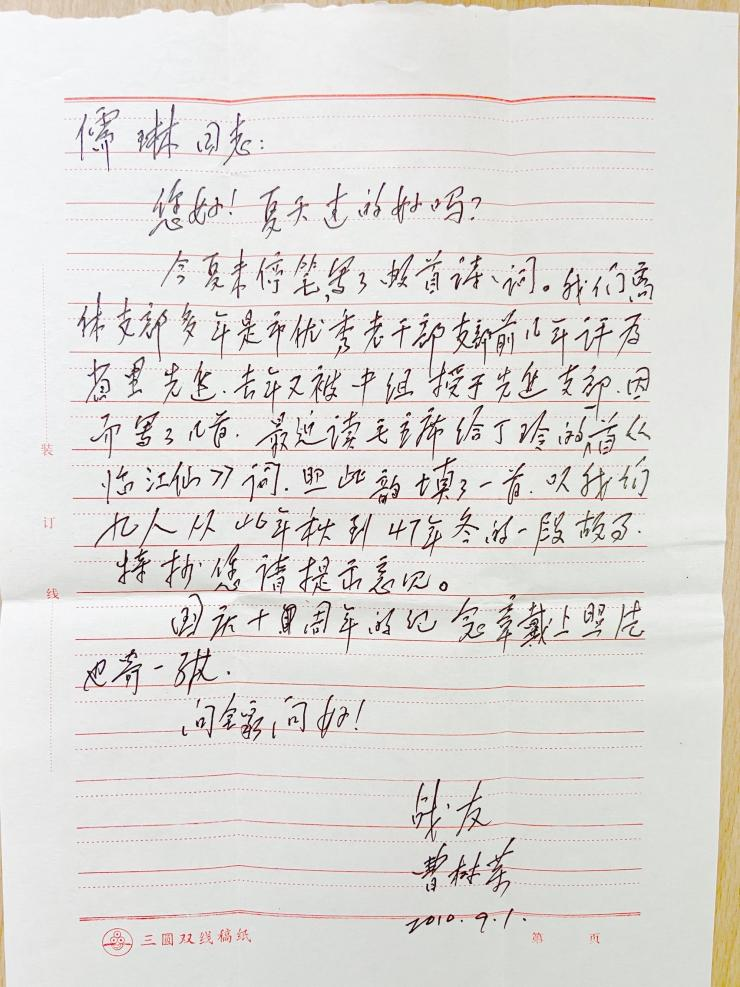 儒琳同志：
您好！夏天过的好吗？
今夏未停笔，写了数首诗、词。我们离
休支部多年是市优秀老干部支部前几年评为
省里先进.去年又被中组授于先进支部.因
而写了几首.最近读毛主席给丁玲的首《
临江仙》词.照此韵填了一首.以我们
九人从46年秋到47年冬的一段故事.
特抄您请提示意见。
国庆十周年的纪念章戴上照片
也寄一张.
问全家问好！
战友
曹林
2010.9.1.
装
订
线
三圆双线稿纸
第 页